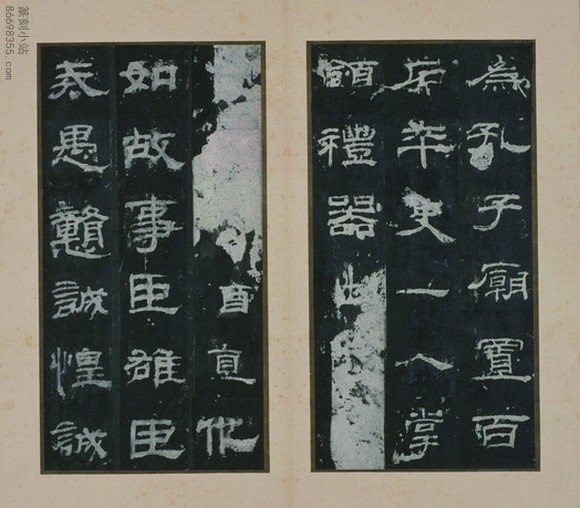 為孔子廟置百
石卒史一人掌
領禮器出
酒直他
如故事臣雄臣
戒愚戇誠惶誠
篆刻小站
86698355.com